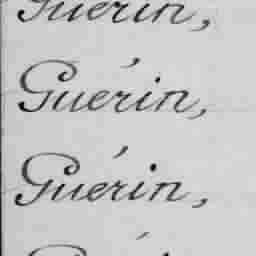 Guérin,
Guérin,
Guérin,